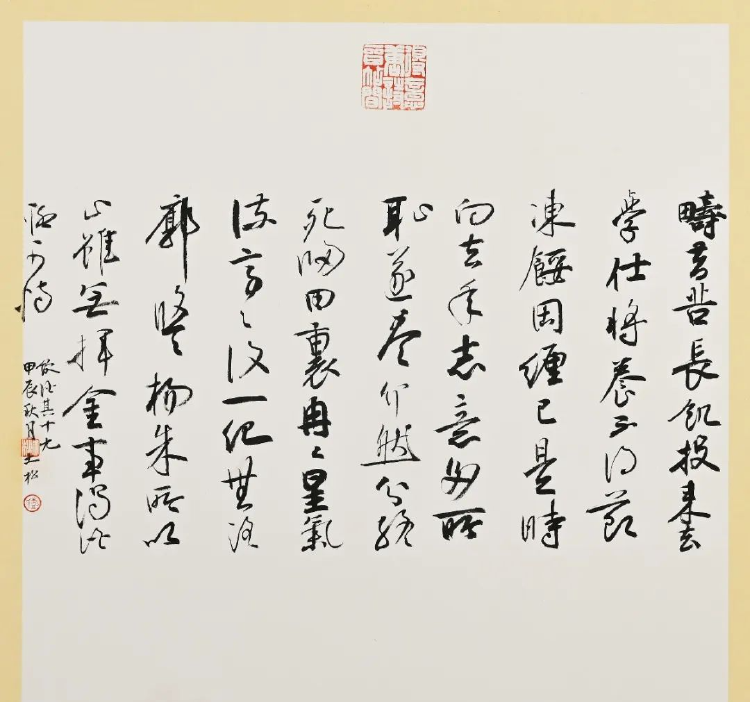 疇昔苦長飢投耒去
學仕將養不得節
凍餒固纏己是時
向立年志意多所
恥遂盡介然分終
死歸田裏冉〻星氣
流亭〻復一紀世路
廓悠〻楊朱所以
止雖無揮金事濁酒
聊可恃
飲酒其十九
甲辰秋月士松